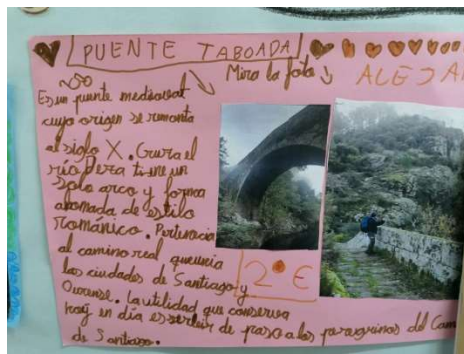 PUENTE TABOADA
Mira la foto
ALEJA
Es un puente medieval
cuyo origen se remonta
al siglo X. Cruza el
río Deza tiene un
solo arco y forma
alomada de estilo
románico. Pertenecia
al camino real que unia
las ciudades de Santiago y
Ourense. La utilidad que conserva
hoy en día es servir de paso a los peregrinos del Cam
de Santiago.
2º E